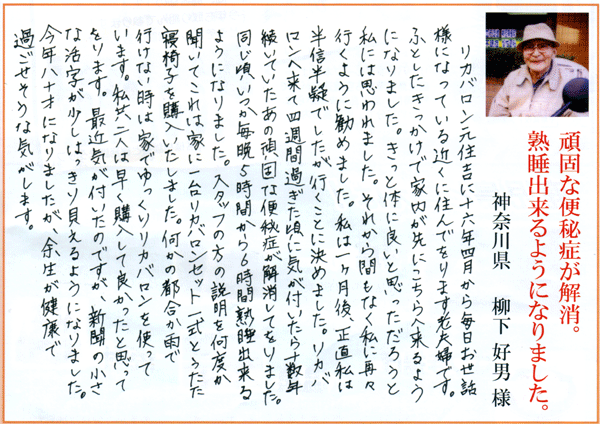 頑固な便秘症が解消。
熟睡出来るようになりました。
神奈川県 柳下 好男 様
リカバロン元住吉に十六年四月から毎日お世話
様になっている近くに住んでをります老夫婦です。
ふとしたきっかけで家内が先にこちらへ来るよう
になりました。きっと体に良いと思っただろうと
私には思われました。それから間もなく私に再々
行くように勧めました。私は一ヶ月後、正直私は
半信半疑でしたが行くことに決めました。リカバ
ロンへ来て四週間過ぎた頃に気が付いたら十数年
続いていたあの頑固な便秘症が解消してをりました。
同じ頃いつか毎晩5時間から6時間熟睡出来る
ようになりました。スタッフの方の説明を何度か
聞いてこれは家に一台リカバロンセット一式とうたた
寝椅子を購入いたしました。何かの都合か雨で
行けない時は家でゆっくりリカバロンを使って
います。私共二人は早く購入して良かったと思って
をります。最近気が付いたのですが、新聞の小さ
な活字が少しはっきり見えるようになりました。
今年八十才になりましたが、余生が健康で
過ごせそうな気がします。